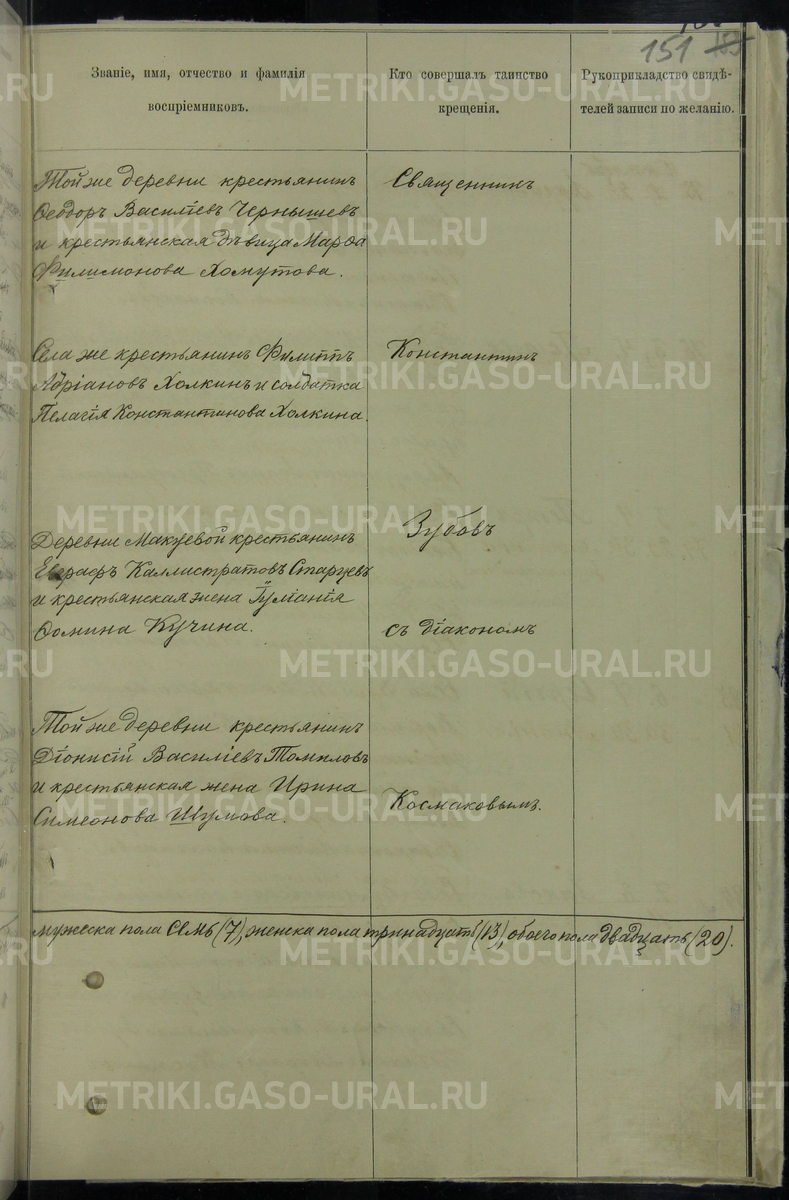 151
Званіе, имя, отчество и фамилія
воспріемниковъ.
Кто совершалъ таинство
крещенія.
Рукоприкладство свидѣ-
телей записи по желанію.
Той же деревни крестьянинъ
Ѳеодоръ Василіевъ Чернышевъ
и крестьянская дѣвица Марѳа
Филимонова Хомутова.
Села же крестьянинъ Филиппъ
Адріановъ Холкинъ и солдатка
Пелагія Константинова Холкина.
Деревни Макуевой крестьянинъ
Евграфъ Каллистратовъ Старцевъ
и крестьянская жена Іуліанія
Ѳомина Кучина.
Той же деревни крестьянинъ
Діонисій Василіевъ Томиловъ
и крестьянская жена Ирина
Симеонова Шумова.
Священникъ
Константинъ
Зубовъ
съ діакономъ
Космаковымъ.
мужеска пола семь (7), женска пола тринадцать (13), обоего пола двадцать (20).
METRIKI.GASO-URAL.RU